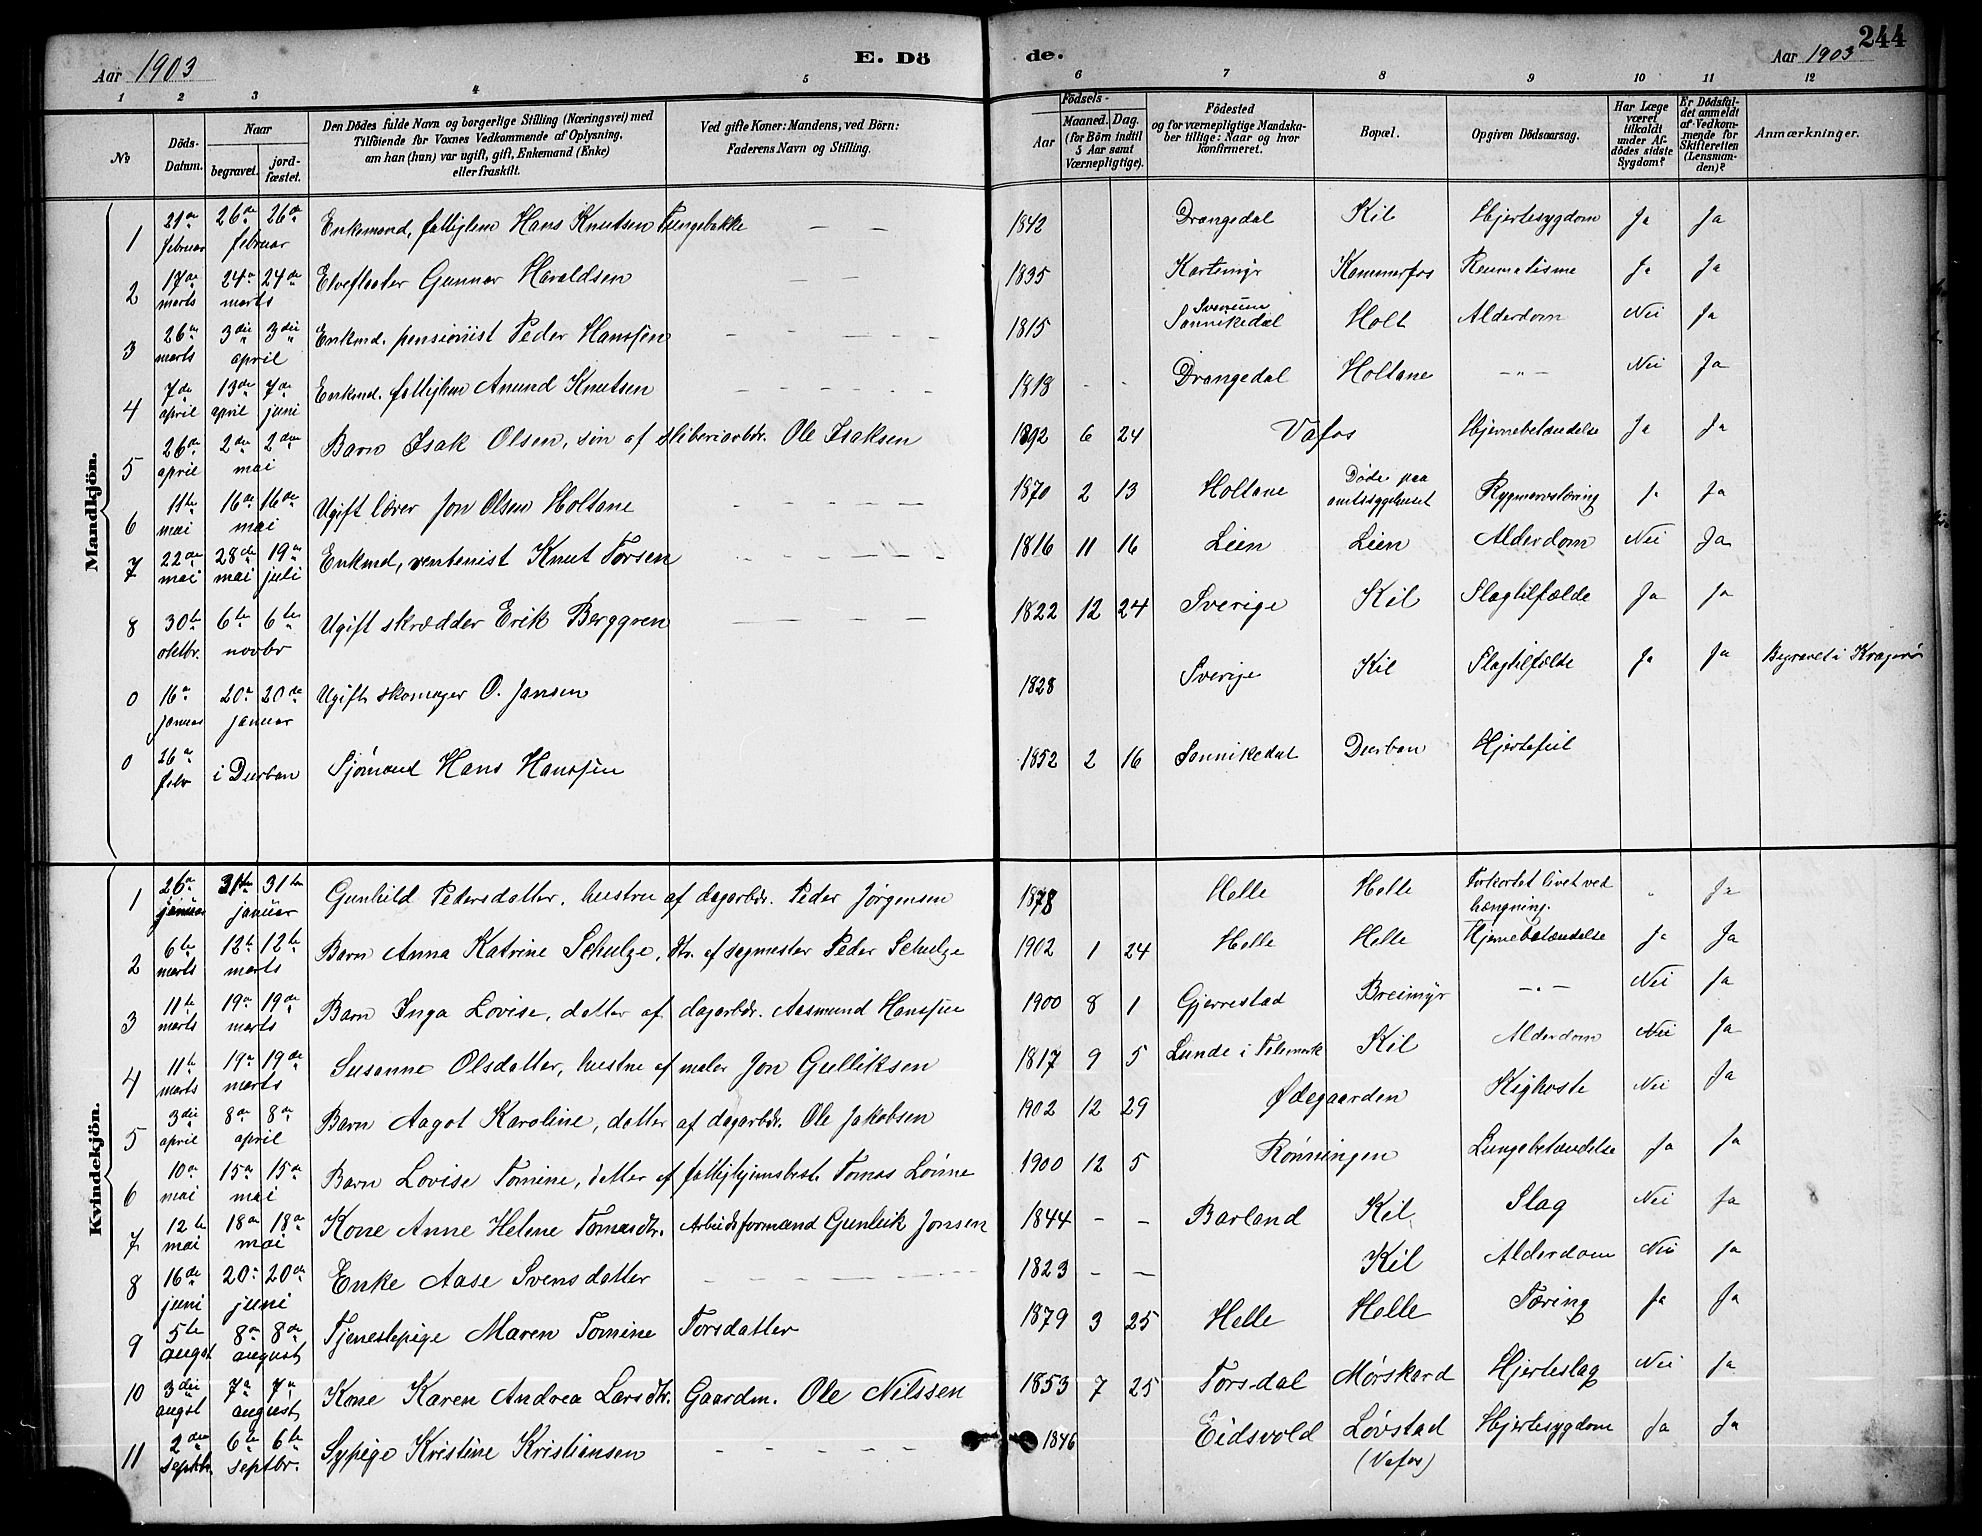 Aar 1903
E. Dö
de.
Aar 1903
244
1 2 3 4 5 6 7 8 9 10 11 12
No
Döds-Datum.
Naar
begravet.
jord-fæstet.
Den Dödes fulde Navn og borgerlige Stilling (Næringsvei) med
Tilföiende for Voxnes Vedkommende af Oplysning,
om han (hun) var ugift, gift, Enkemand (Enke)
eller fraskilt.
Ved gifte Koner: Mandens, ved Börn:
Faderens Navn og Stilling.
Födsels-
Aar
Maaned. Dag.
(for Börn indtil
5 Aar samt
Værnepligtige).
Födested
og for værnepligtige Mandska-
ber tillige: Naar og hvor
konfirmeret.
Bopæl.
Opgiven Dödsaarsag.
Har Læge
været
tilkaldt
under Af-
dödes sidste
Sygdom?
Er Dödsfal-
det anmeldt
af Vedkom-
mende for
Skifteretten
(Lensman-
den)?
Anmærkninger.
Mandkjön.
1 21de februar 26de 26de februar Enkemand, fattiglem Hans Knutsen Tungebakke — — 1842 Drangedal Kil Hjertesygdom Ja Ja
2 17de marts 24de 24de marts Elvefløter Gunnar Haraldsen — — 1835 Kartemyr Kammerfos Reumatisme Ja Ja
3 26de marts 3die 3die april Enkmd. pensionist Peder Hanssen 1815 Sannikedal Holt Alderdom Nei Ja
4 7de april 13de april 7de juni Enkmd. fattiglem Anund Knutsen 1818 - - Drangedal Holtane — " — Nei Ja
5 26de april 2den 2den mai Barn Isak Olsen, søn af sliberiarbdr. Ole Isaksen 1892 6 24 Vafos Hjernebetændelse Ja Ja
6 11te mai 16de 16de mai Ugift lærer Jon Olsen Holtane 1870 2 13 Holtane Døde paa amtssygehuset Rygmarvstæring Ja Ja
7 22de mai 28de mai 19de juli Enkmd, rentenist Knut Torsen 1816 11 16 Lien Lien Alderdom Nei Ja
8 30te oktbr. 6te 6te novbr Ugift skrædder Erik Berggren 1822 12 24 Sverige Kil Slagtilfælde Ja Ja
0 16de januar 20de 20de januar Ugift skomager O. Jansen 1828 Sverige Kil Slagtilfælde Ja Ja Begravet i Kragerø
0 26de febr i Durban Sjømand Hans Hanssen 1852 2 16 Sannikedal Durban Hjertefeil
Kvindekjön.
1 26de januar 31te 31te januar Gunhild Pedersdatter, hustru af dagarbdr. Peder Jørgensen 1878 Helle Helle Forkortet livet ved hængning. " Ja
2 6te marts 12te 12te marts Barn Anna Katrine Schulze, dtr. af sagmester Peder Schulze 1902 1 24 Helle Helle Hjernebetændelse Ja Ja
3 11te marts 19de 19de marts Barn Inga Lovise, datter af dagarbdr. Aasmund Hanssen 1900 8 1 Gjerrestad Breimyr — " — Nei Ja
4 11te marts 19de 19de marts Susanne Olsdatter, hustru af maler Jon Gulliksen 1817 9 5 Lunde i Telemark Kil Alderdom Nei Ja
5 3die april 8de 8de april Barn Aagot Karoline, datter af dagarbdr. Ole Jakobsen 1902 12 29 Ødegaarden Kighoste Nei Ja
6 10de mai 15de 15de mai Barn Lovise Tomine, datter af fattighjemsbest. Tomas Lønne 1900 12 5 Rønningen Lungebetændelse Ja Ja
7 12te mai 18de 18de mai Kone Anne Helene Tomasdtr. Arbeidsformand Gunleik Jonsen 1844 — — Barland Kil Slag Nei Ja
8 16de juni 20de 20de juni Enke Aase Svensdatter 1823 — — Kil Alderdom Nei Ja
9 5te august 8de 8de august Tjenestepige Maren Tomine Torsdatter 1879 3 25 Helle Helle Tæring Ja Ja
10 3die augst 7de 7de august Kone Karen Andrea Larsdtr. Gaardm. Ole Nilssen 1853 7 25 Torsdal Mørskard Hjerteslag Nei Ja
11 2den septbr. 6te 6te septbr. Sypige Kristine Kristiansen 1846 Eidsvold Løvstad (Vafos) Hjertesygdom Ja Ja